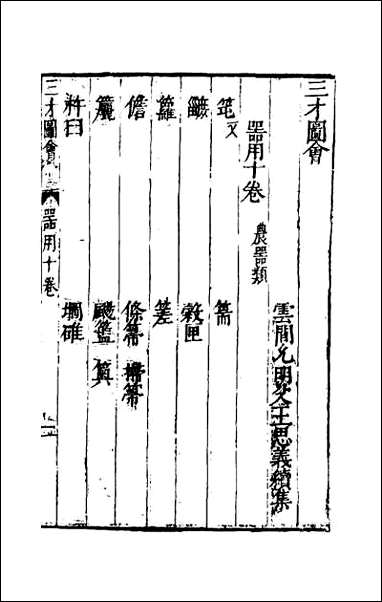 三才圖會
雲間允明父王思義續集
器用十卷 農器類
笐叉 篅
穀匣
籮
儋 條箒 掃箒
籭 颺籃 箕
杵臼 堈碓
三才圖會 器用十卷